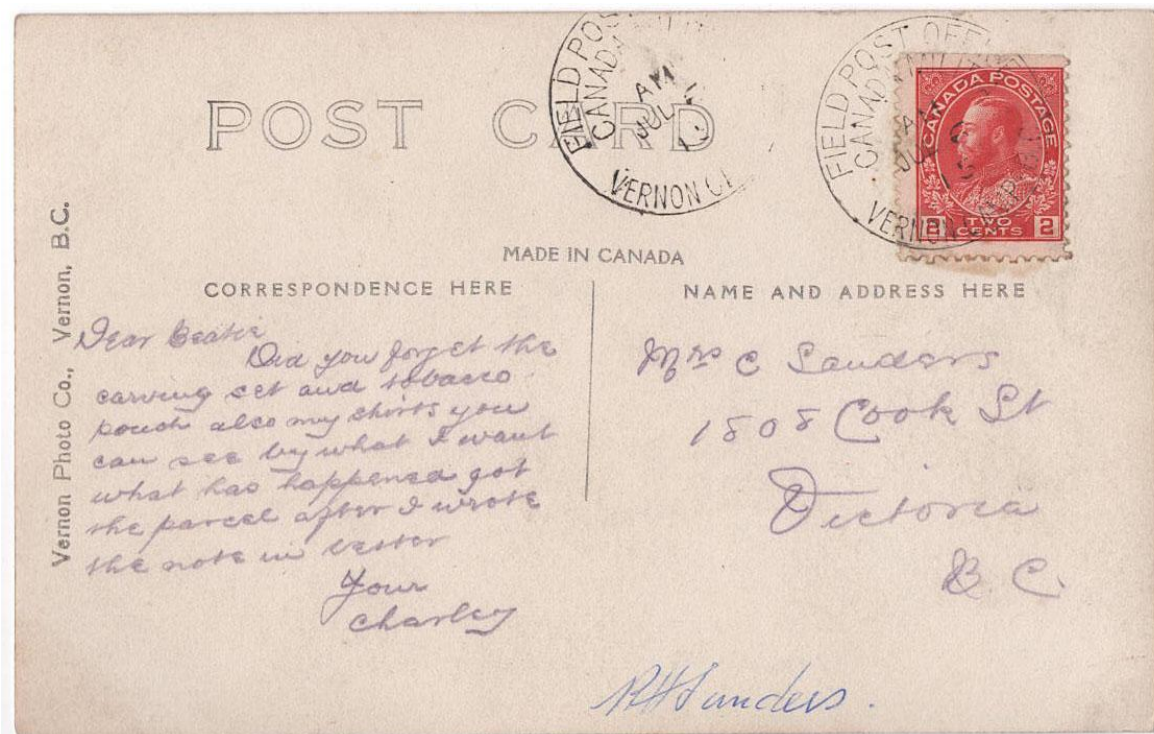 POST CARD
FIELD POST
CANADA
AM
JUL
VERNON
FIELD POST OFFICE
CANADA MILITIA
AM
JUL
15
VERNON CAMP
CANADA POSTAGE
2 TWO CENTS 2
Vernon Photo Co., Vernon, B.C.
MADE IN CANADA
CORRESPONDENCE HERE
NAME AND ADDRESS HERE
Dear Beatie
Did you forget the
carving set and tobacco
pouch also my shirts you
can see by what I want
what has happened got
the parcel after I wrote
the note in letter
Your
Charley
Mrs C Sanders
1808 Cook St
Victoria
B.C.
RHSanders.